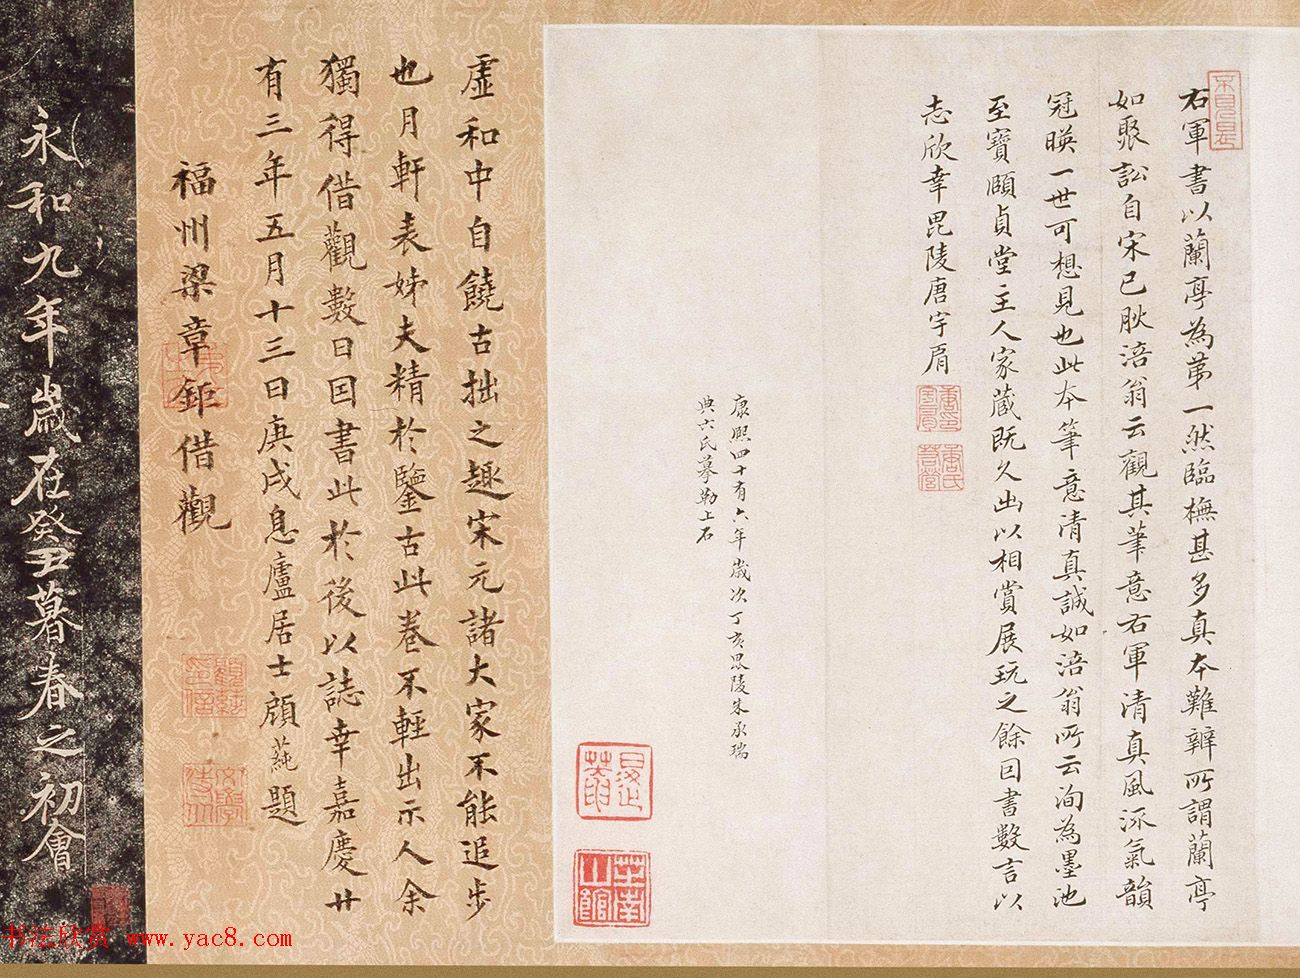 右軍書以蘭亭為第一然臨橅甚多真本難辨所謂蘭亭
如聚訟自宋已肰涪翁云觀其筆意右軍清真風流氣韻
冠暎一世可想見也此本筆意清真誠如涪翁所云洵為墨池
至寶頤貞堂主人家蔵既久出以相賞展玩之餘因書數言以
志欣幸毘陵唐宇肩
康熙四十有六年歲次丁亥毘陵朱承瑞
典六氏摹勒上石
虛和中自饒古拙之趣宋元諸大家不能追步
也月軒表姊夫精於鑒古此卷不輕出示人余
獨得借觀數日因書此於後以誌幸嘉慶廿
有三年五月十三日庚戌息廬居士顧蒓題
福州梁章鉅借觀
永和九年歲在癸丑暮春之初會
书法欣赏 www.yac8.com